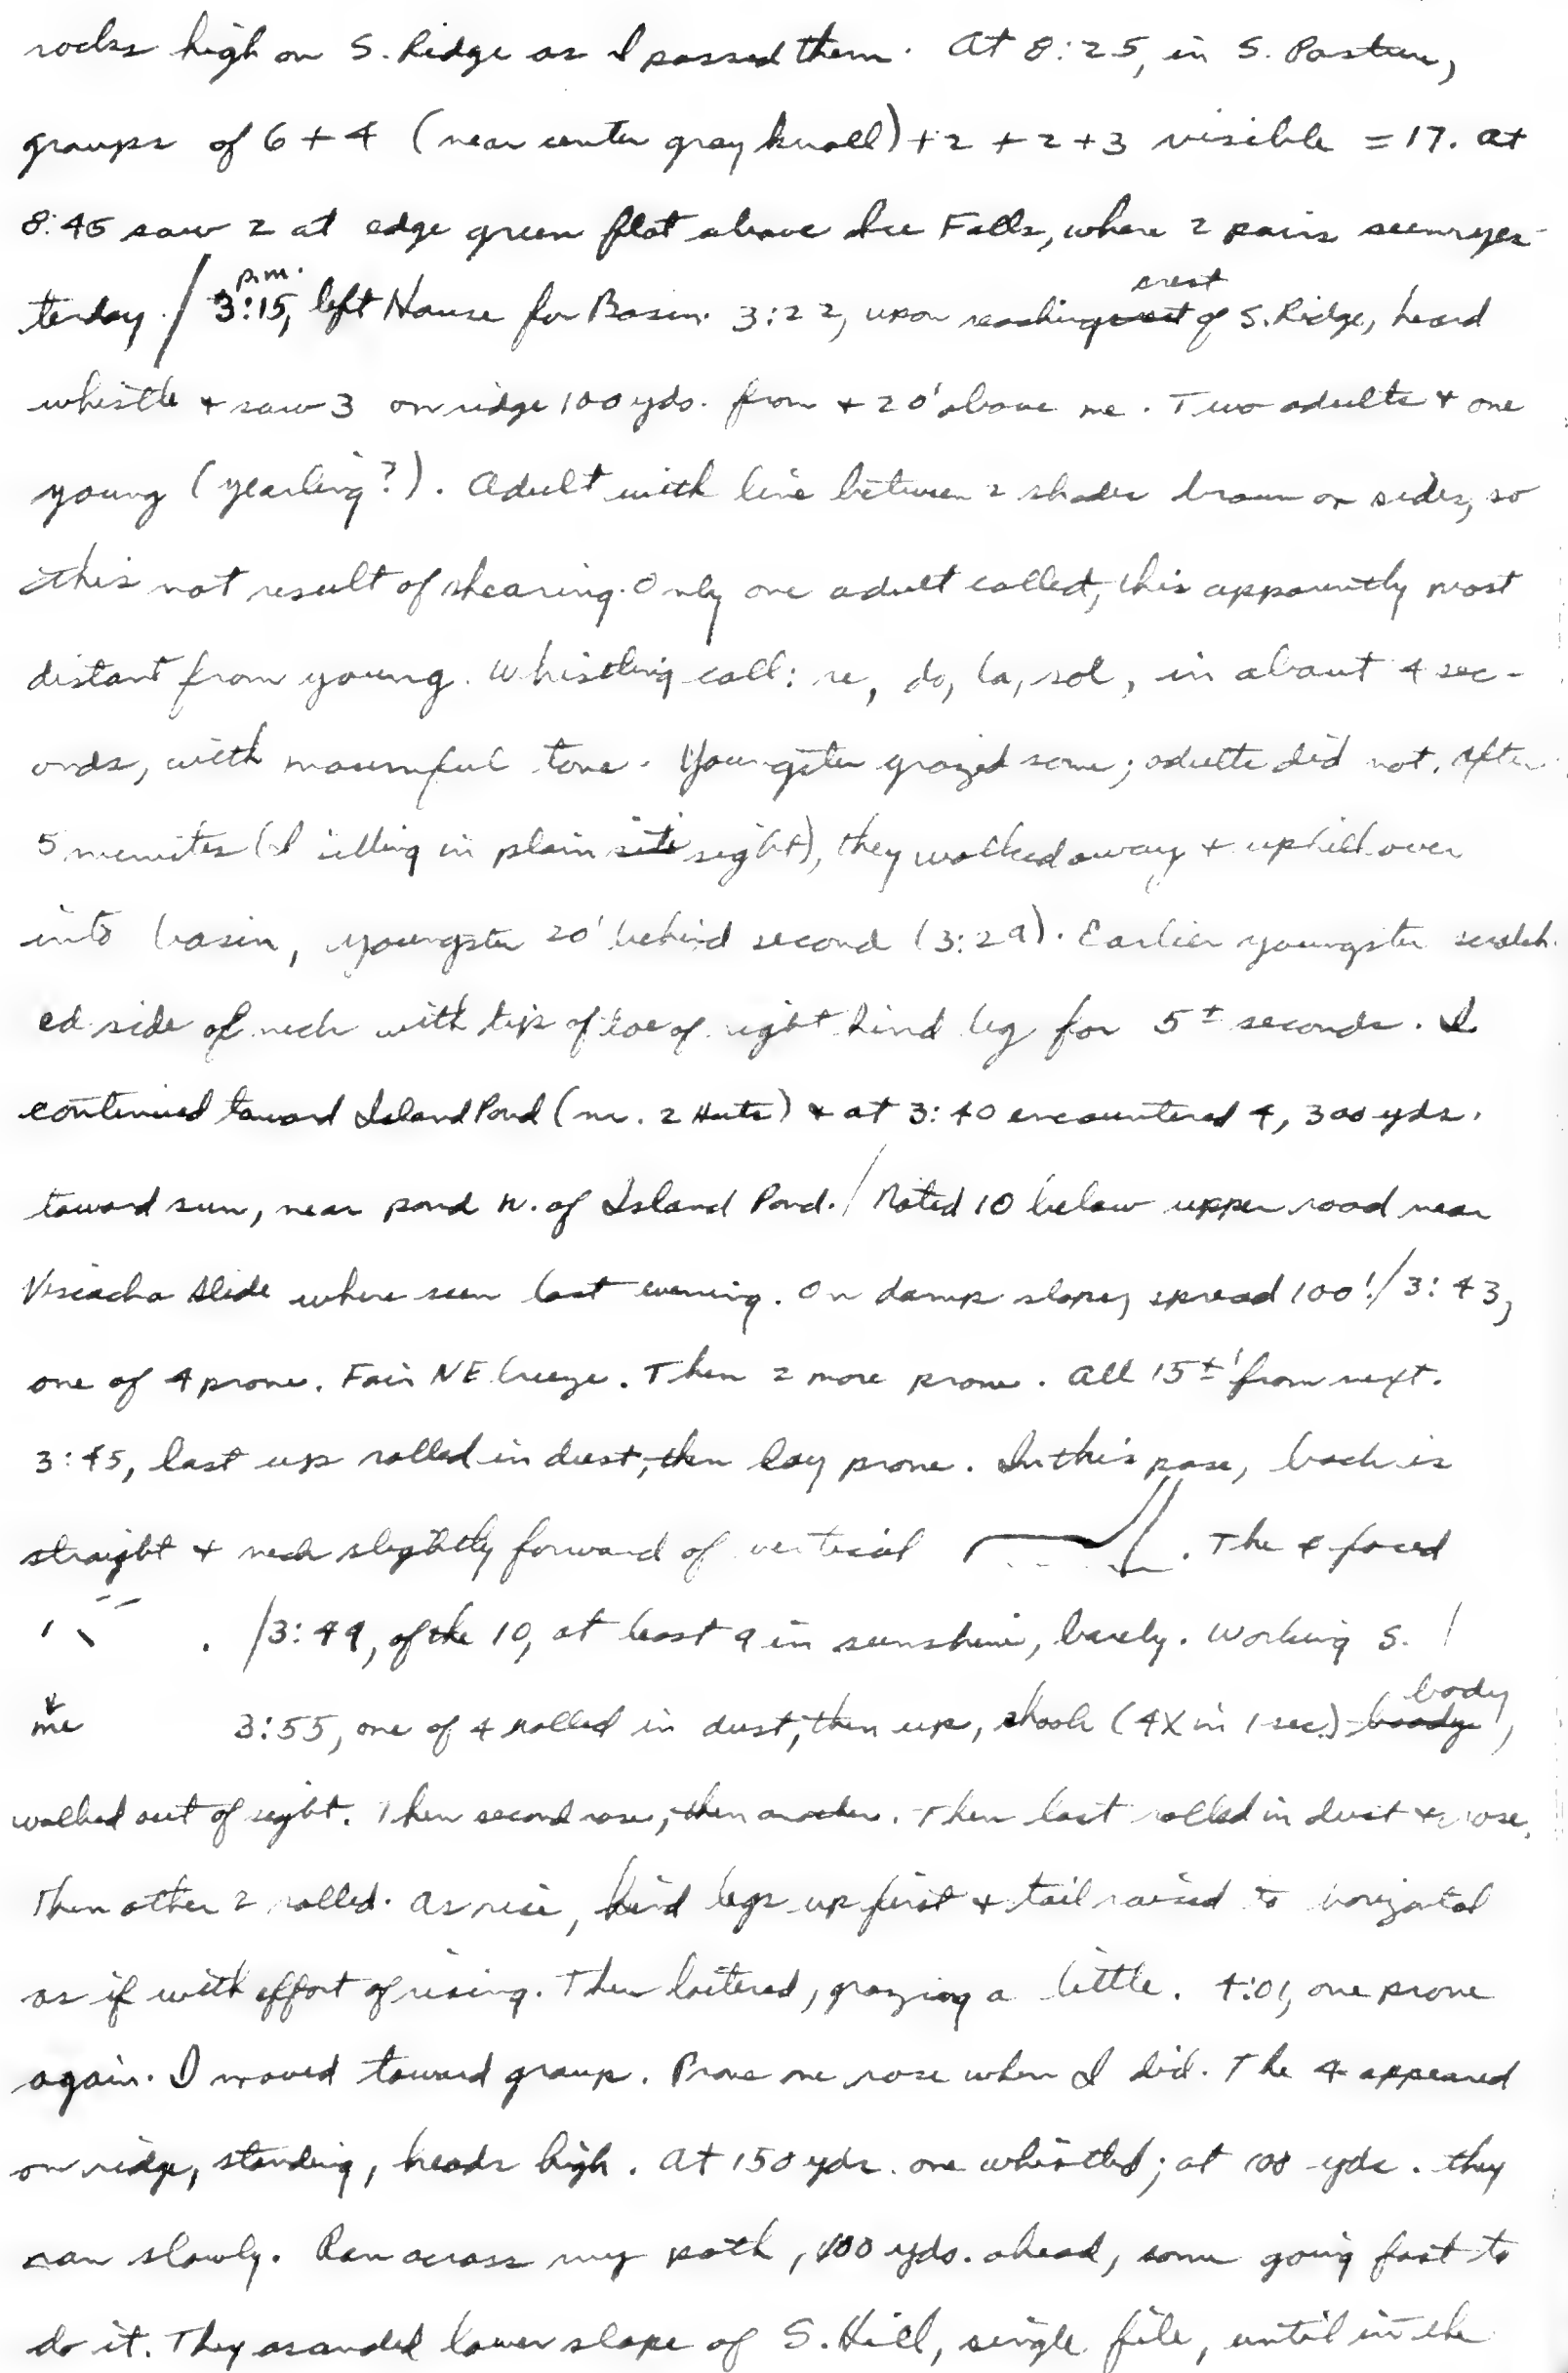 rocks high on S. Ridge as I passed them. At 8:25, in S. Pasture,
groups of 6 + 4 (near center gray knoll) + 2 + 2 + 3 visible = 17. At
8:45 saw 2 at edge green flat above Ice Falls, where 2 pairs seen yes-
terday. / 3:15 p.m., left House for Basin. 3:22, upon reaching crest of S. Ridge, heard
whistle + saw 3 on ridge 100 yds. from + 20' above me. Two adults + one
young (yearling?). Adult with line between 2 shades brown on sides, so
this not result of shearing. Only one adult called, this apparently most
distant from young. Whistling call: re, do, la, sol, in about 4 sec-
onds, with mournful tone. Youngster grazed some; adults did not. After
5 minutes (I sitting in plain site sight), they walked away + uphill over
into basin, youngster 20' behind second (3:29). Earlier youngster scratch-
ed side of neck with tip of toe of right hind leg for 5± seconds. I
continued toward Island Pond (nr. 2 Huts) + at 3:40 encountered 4, 300 yds.
toward sun, near pond N. of Island Pond. / Noted 10 below upper road near
Viscacha Slide where seen last evening. On damp slope, spread 100'. / 3:43,
one of 4 prone. Fair NE breeze. Then 2 more prone. All 15±' from next.
3:45, last up rolled in dust, then lay prone. In this pose, back is
straight + neck slightly forward of vertical . The 4 faced
. / 3:49, of the 10, at least 9 in sunshine, barely. Working S. /
me 3:55, one of 4 rolled in dust, then up, shook (4X in 1 sec.) body,
walked out of sight. Then second rose, then another. Then last rolled in dust + rose.
Then other 2 rolled. As rise, hind legs up first + tail raised to horizontal
as if with effort of rising. Then loitered, grazing a little. 4:01, one prone
again. I moved toward group. Prone one rose when I did. The 4 appeared
on ridge, standing, heads high. At 150 yds. one whistled; at 100 yds. they
ran slowly. Ran across my path, 100 yds. ahead, some going fast to
do it. They ascended lower slope of S. Hill, single file, until in the